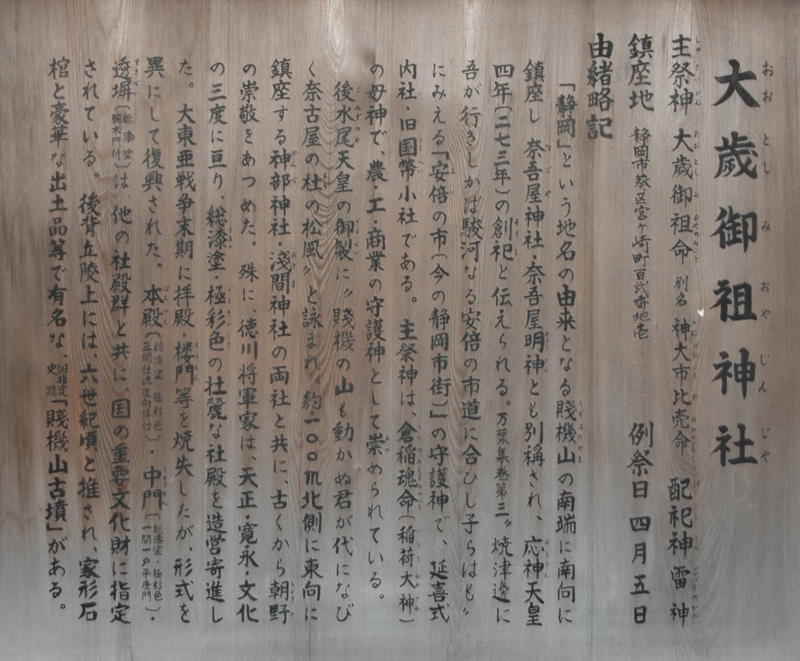 大歳御祖神社
主祭神 大歳御祖命 別名 神大市比売命 配祀神 雷神
鎮座地 静岡市葵区宮ヶ崎町百弐番地壱 例祭日 四月五日
由緒略記
「静岡」という地名の由来となる賤機山の南端に南向に
鎮座し 奈吾屋神社・奈吾屋明神とも別称され、応神天皇
四年(二七三年)の創祀と伝えられる。万葉集巻第三〃焼津邊に
吾が行きしかば駿河なる安倍の市道に合ひし子らはも〃
にみえる「安倍の市(今の静岡市街)」の守護神で、延喜式
内社・旧国幣小社である。主祭神は、倉稲魂命(稲荷大神)
の母神で、農・工・商業の守護神として崇められている。
後水尾天皇の御製に〃賤機の山も動かぬ君が代になび
く奈古屋の杜の松風〃と詠まれ、約一〇〇m北側に東向に
鎮座する神部神社・淺間神社の両社と共に、古くから朝野
の崇敬をあつめた。殊に、徳川将軍家は、天正・寛永・文化
の三度に亘り、総漆塗・極彩色の壮麗な社殿を造営寄進し
た。大東亜戦争末期に拝殿 楼門等を焼失したが、形式を
異にして復興された。本殿(総漆塗・極彩色 三間社流造向拝付)・中門(総漆塗・極彩色 一間一戸平唐門)・
透塀(総漆塗 付)は、他の社殿群と共に、国の重要文化財に指定
されている。後背丘陵上には、六世紀頃と推され、家形石
棺と豪華な出土品等で有名な、国指定史跡「賤機山古墳」がある。